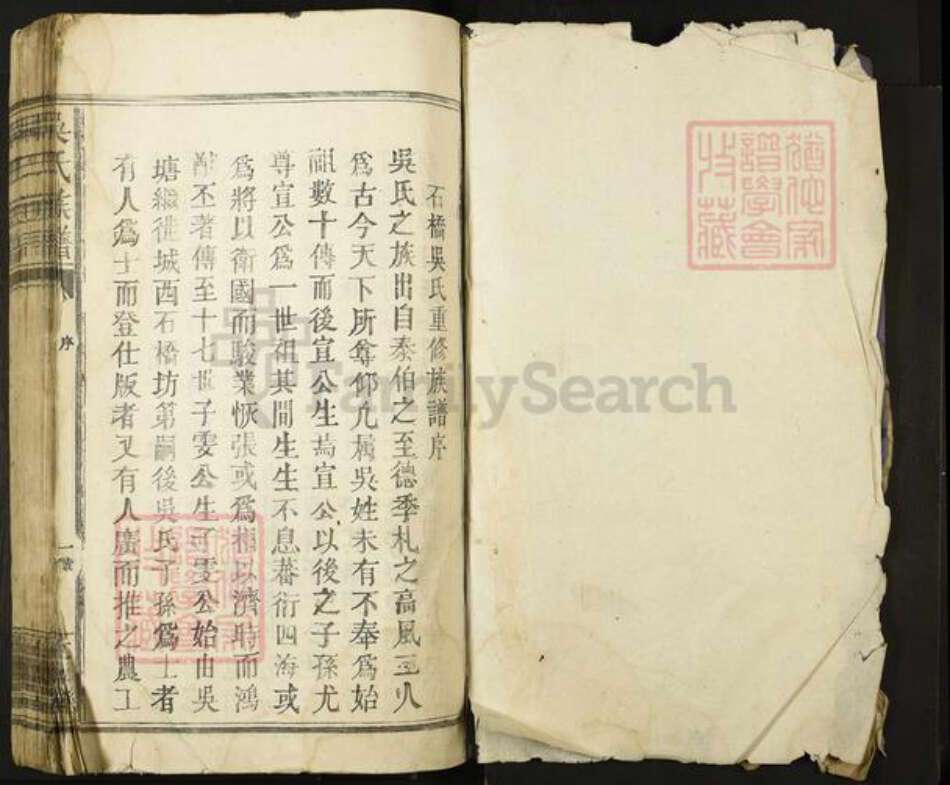 石橋吳氏重修族譜序
吳氏之族出自泰伯之至德季札之高風至人
爲古今天下所尊仰凡屬吳姓未有不奉爲始
祖數十傳而後宣公生焉宣公以後之子孫尤
尊宣公爲一世祖其間生生不息蕃衍四海或
爲將以衛國而駿業恢張或爲相以濟時而鴻
猷丕著傳至十七世子雯公生子雯公始由吳
塘繼徙城西石橋坊第嗣後吳氏子孫爲士者
有人爲士而登仕版者又有人廣而推之農工
吳氏族譜
序
一
猶他家
譜學會
收藏
FamilySearch